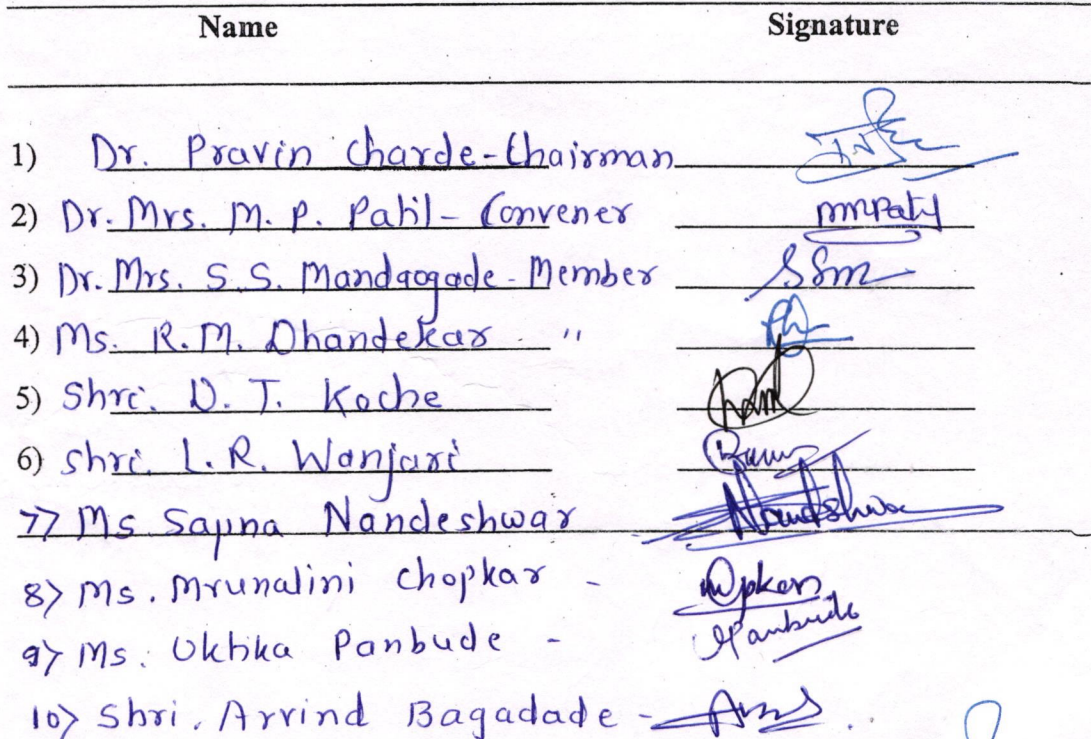 Name Signature
1) Dr. Pravin Charde - Chairman
2) Dr. Mrs. M. P. Patil - Convener mmpatil
3) Dr. Mrs. S. S. Mandaogade - Member SSm
4) Ms. R. M. Dhandekar "
5) Shri. D. T. Koche
6) Shri. L. R. Wanjari
7> Ms Sapna Nandeshwar Nandeshwar
8> Ms. Mrunalini Chopkar -
9> Ms. Uktika Panbude - Panbude
10> Shri. Arvind Bagadade -